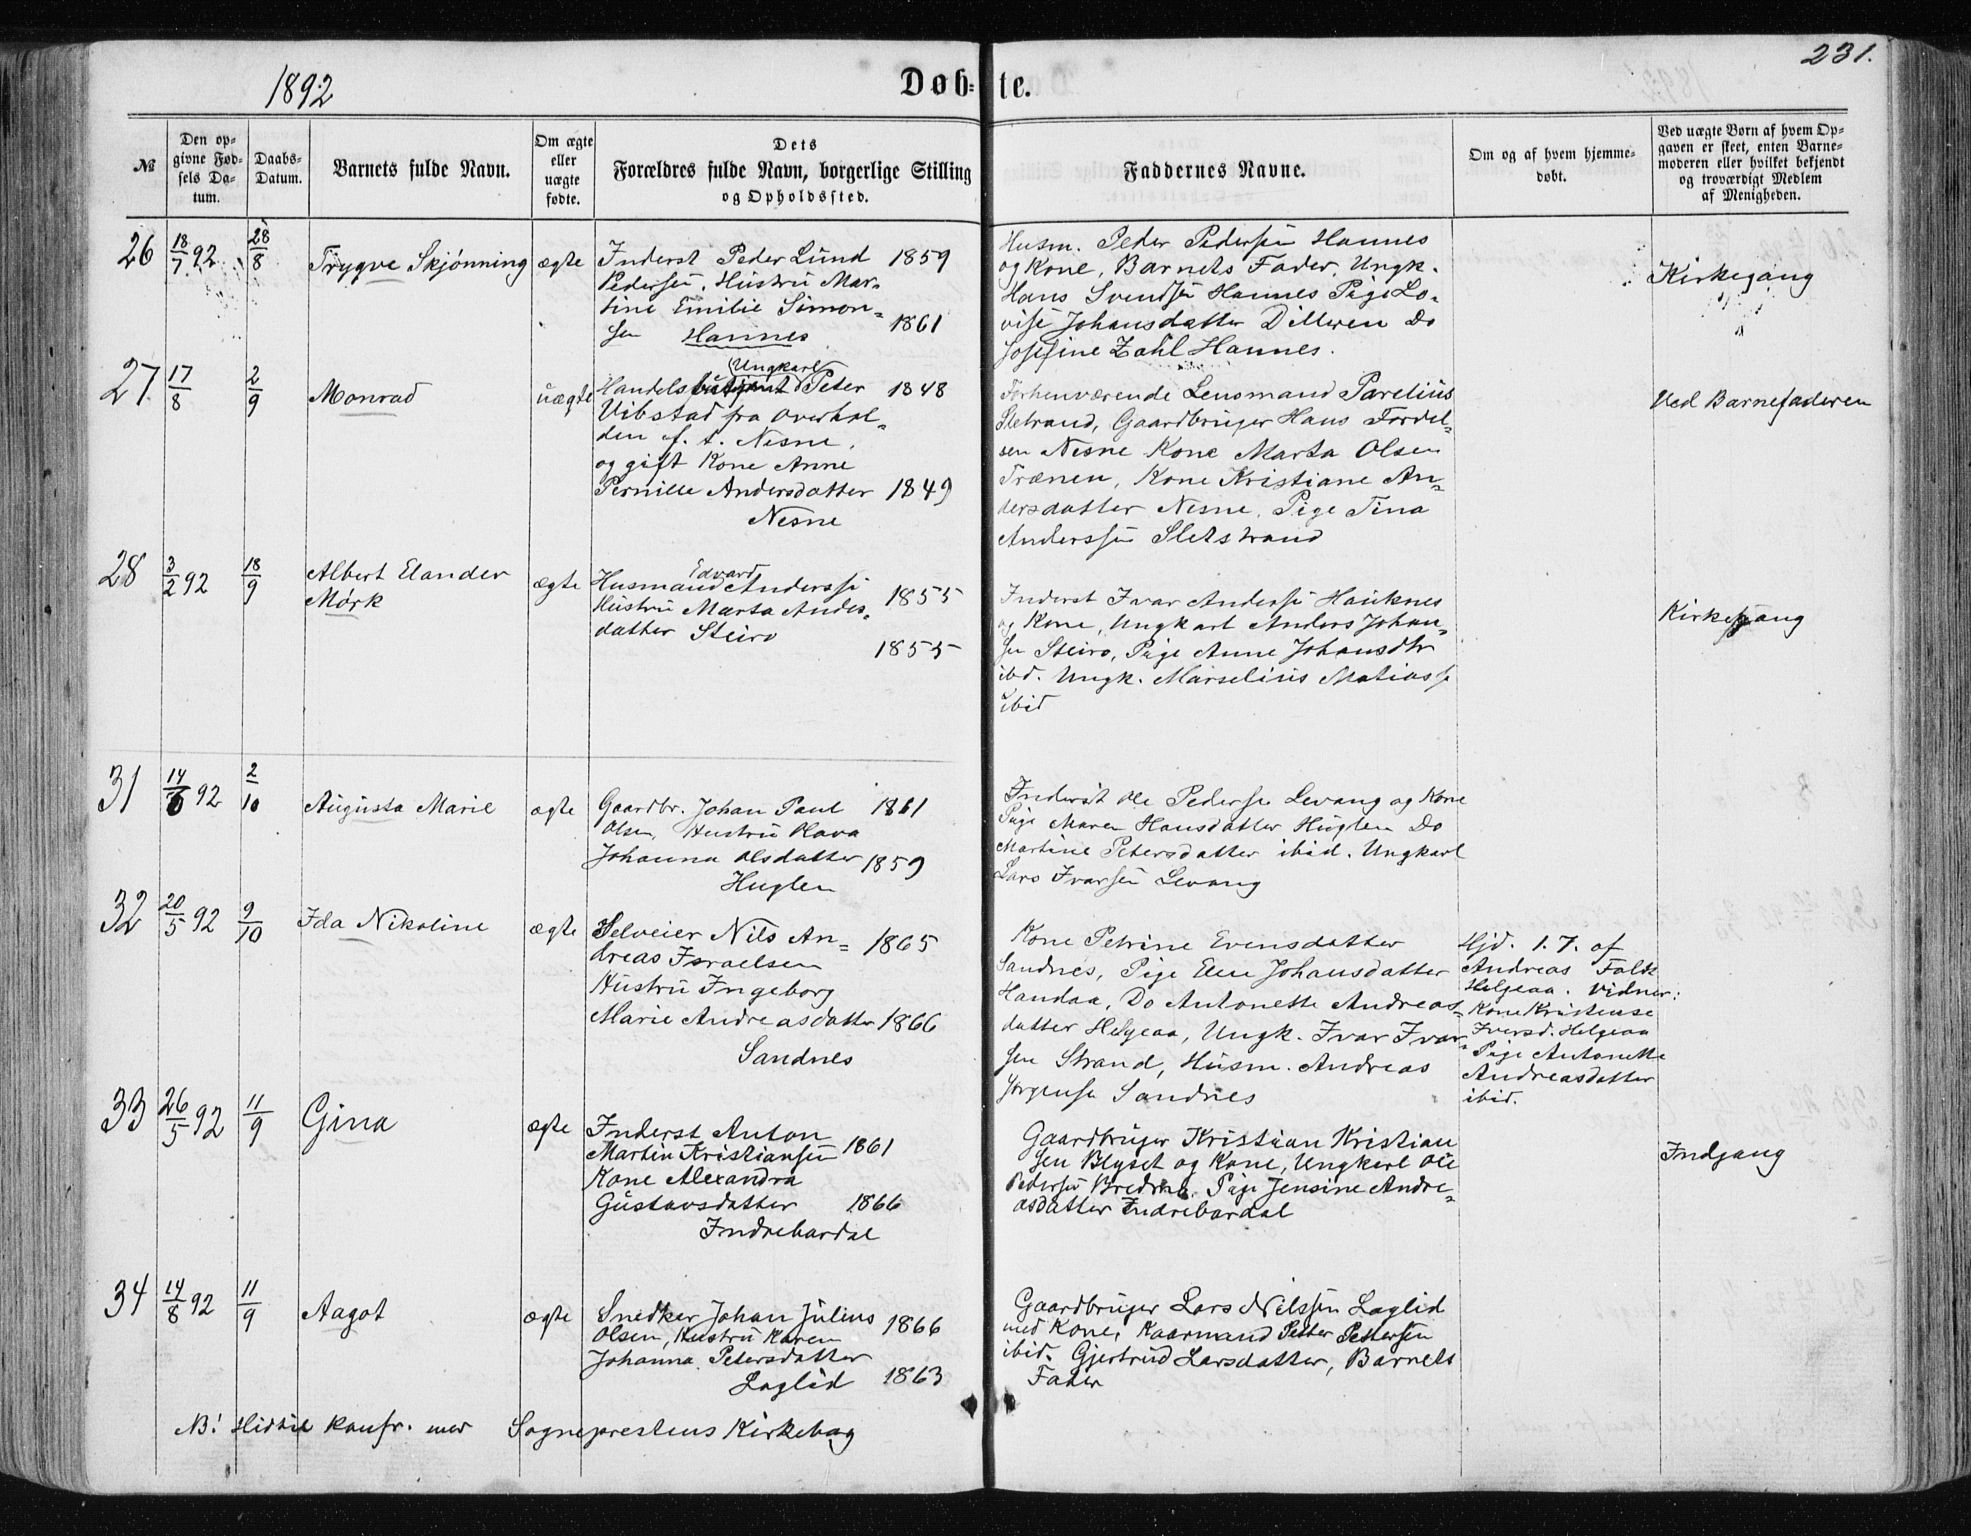 1892
Døb-
te.
231.
№
Den op-
givne Fød-
sels Da-
tum.
Daabs-
Datum.
Barnets fulde Navn.
Om ægte
eller
uægte
fødte.
Dets
Forældres fulde Navn, borgerlige Stilling
og Opholdssted.
Faddernes Navne.
Om og af hvem hjemme-
døbt.
Ved uægte Børn af hvem Op-
gaven er skeet, enten Barne-
moderen eller hvilket bekjendt
og troværdigt Medlem
af Menigheden.
26
18/7 92
28/8
Trygve Skjønning
ægte
Inderst Peder Lund 1859
Pedersen, Hustru Mar-
tine Emilie Simon-
sen Hannes 1861
Husm. Peder Pedersen Hannes
og Kone, Barnets Fader, Ungk.
Hans Svendsen Hannes Pige Lo-
vise Johansdatter Dilleren Do
Josefine Zahl Hannes.
Kirkegang
27
17/8
2/9
Monrad
uægte
Ungkarl
Handelsbetjent Peter 1848
Vibstad fra Overhal-
den f. t. Nesne,
og gift Kone Anne
Pernille Andersdatter 1849
Nesne
Forhenværende Lensmand Parelius
Sletrand, Gaardbruger Hans Fordel-
sen Nesne Kone Marta Olsen
Trænen, Kone Kristiane An-
dersdatter Nesne, Pige Tina
Anderssen Sletstrand
Ved Barnefaderen
28
3/2 92
18/9
Albert Elander
Mørk
ægte
Edvard
Husmand Anderssen 1855
Hustru Marta Anders-
datter Steiro
1855
Inderst Ivar Andersen Hauknes
og Kone, Ungkarl Anders Johan-
sen Steiro, Pige Anne Johansdtr
ibd. Ungk. Marselius Matiasse
ibid
Kirkegang
31
14/6 92
2/10
Augusta Marie
ægte
Gaardbr. Johan Paul 1861
Olsen, Hustru Olava
Johanna Olsdatter 1859
Huglen
Inderst Ole Pederse Levang og Kone
Pige Maren Hansdatter Huglen Do
Martine Petersdatter ibid. Ungkarl
Lars Ivarsen Levang
32
20/5 92
9/10
Ida Nikoline
ægte
Selveier Nils An- 1865
dreas Israelsen
Hustru Ingeborg
Marie Andreasdatter 1866
Sandnes
Kone Petrine Evensdatter
Sandnes, Pige Elen Johansdatter
Handaa, Do Antonette Andreas-
datter Helgeaa, Ungk. Ivar Ivar-
sen Strand, Husm. Andreas
Jørgense Sandnes
Hjd. 1.7. af
Andreas Falk
Helgeaa. Vidner:
Kone Kristense
Iversd. Helgeaa
Pige Antonette
Andreasdatter
ibid.
33
26/5 92
11/9
Gina
ægte
Inderst Anton
Martin Kristiansen 1861
Kone Alexandra
Gustavsdatter 1866
Indrebardal
Gaardbruger Kristian Kristian
sen Blyset og Kone, Ungkarl Ole
Pedersen, Pige Jensine Andre-
asdatter Indrebardal
Indgang
34
14/8 92
11/9
Aagot
ægte
Snedker Johan Julius 1866
Olsen, Hustru Karen
Johanna Petersdatter
Laglid 1863
Gaardbruger Lars Nilssen Laglid
med Kone, Kaarmand Petter Pettersen
ibid. Gjertrud Larsdatter, Barnets
Fader
NB! Hidtil konfr. med Sogneprestens Kirkebog